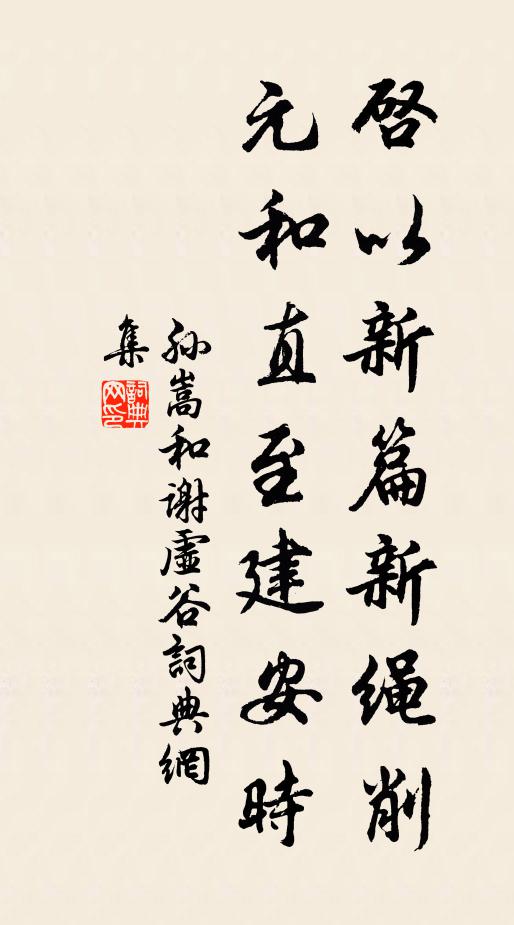 啓以新篇新绳削
元和直至建安時
孙嵩和谢虛谷詞典網
集
詞典
网印